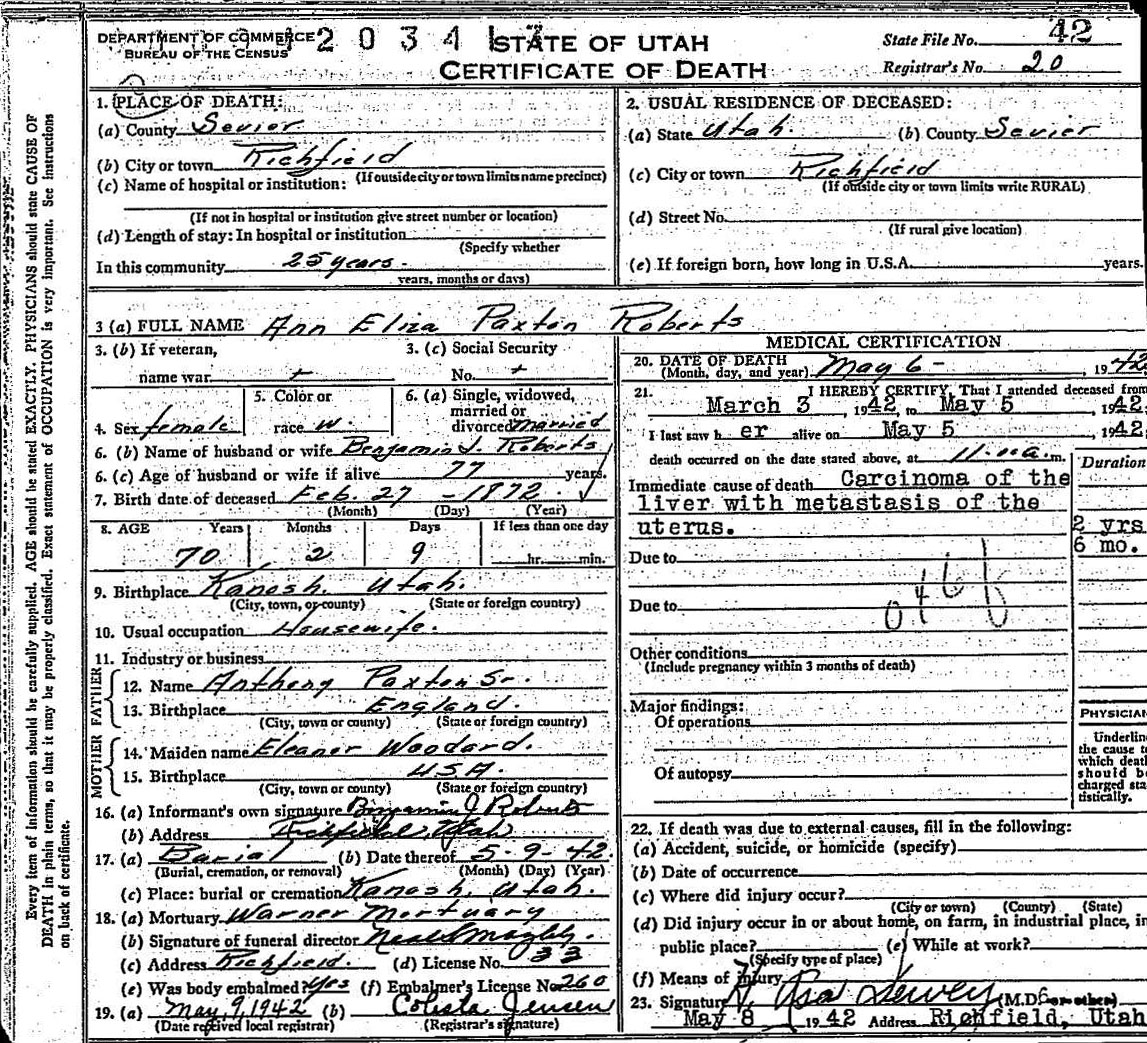 DEPARTMENT OF COMMERCE
BUREAU OF THE CENSUS
2 0 3 4
STATE OF UTAH
CERTIFICATE OF DEATH
State File No. 42
Registrar's No. 20
Every item of information should be carefully supplied. AGE should be stated EXACTLY. PHYSICIANS should state CAUSE OF
DEATH in plain terms, so that it may be properly classified. Exact statement of OCCUPATION is very important. See instructions
on back of certificate.
1. PLACE OF DEATH:
(a) County Sevier
(b) City or town Richfield
(If outside city or town limits name precinct)
(c) Name of hospital or institution:
(If not in hospital or institution give street number or location)
(d) Length of stay: In hospital or institution
(Specify whether
In this community 25 years.
years, months or days)
2. USUAL RESIDENCE OF DECEASED:
(a) State Utah. (b) County Sevier
(c) City or town Richfield
(If outside city or town limits write RURAL)
(d) Street No.
(If rural give location)
(e) If foreign born, how long in U.S.A. years.
3 (a) FULL NAME Ann Eliza Paxton Roberts
3. (b) If veteran,
name war +
3. (c) Social Security
No. +
4. Sex female
5. Color or
race W.
6. (a) Single, widowed,
married or
divorced Married
6. (b) Name of husband or wife Benjamin J. Roberts
6. (c) Age of husband or wife if alive 77 years.
7. Birth date of deceased Feb. 27 - 1872
(Month) (Day) (Year)
8. AGE Years Months Days If less than one day
70 2 9 hr. min.
9. Birthplace Kanosh Utah.
(City, town, or county) (State or foreign country)
10. Usual occupation Housewife.
11. Industry or business
FATHER
12. Name Anthony Paxton Sr.
13. Birthplace England.
(City, town or county) (State or foreign country)
MOTHER
14. Maiden name Eleanor Woodard.
15. Birthplace USA.
(City, town or county) (State or foreign country)
16. (a) Informant's own signature Benjamin J Roberts
(b) Address Richfield Utah
17. (a) Burial (b) Date thereof 5-9-42
(Burial, cremation, or removal) (Month) (Day) (Year)
(c) Place: burial or cremation Kanosh, Utah.
18. (a) Mortuary Warner Mortuary
(b) Signature of funeral director
(c) Address Richfield. (d) License No. 33
(e) Was body embalmed? Yes (f) Embalmer's License No. 260
19. (a) May, 9, 1942 (b) Colista Jensen
(Date received local registrar) (Registrar's signature)
MEDICAL CERTIFICATION
20. DATE OF DEATH
(Month, day, and year) May 6 - , 1942
21. I HEREBY CERTIFY, That I attended deceased from
March 3, 1942, to May 5, 1942.
I last saw h er alive on May 5, 1942.
death occurred on the date stated above, at 11:00 a.m.
Duration
Immediate cause of death Carcinoma of the
liver with metastasis of the
uterus.
2 yrs
6 mo.
Due to
Due to
Other conditions
(Include pregnancy within 3 months of death)
Major findings:
Of operations
Of autopsy
PHYSICIAN
Underlin
the cause t
which deat
should b
charged sta
tistically.
22. If death was due to external causes, fill in the following:
(a) Accident, suicide, or homicide (specify)
(b) Date of occurrence
(c) Where did injury occur?
(City or town) (County) (State)
(d) Did injury occur in or about home, on farm, in industrial place, in
public place? (e) While at work?
(Specify type of place)
(f) Means of injury
23. Signature Asa Dewey (M.D. or other)
May 8 1942 Address Richfield, Utah